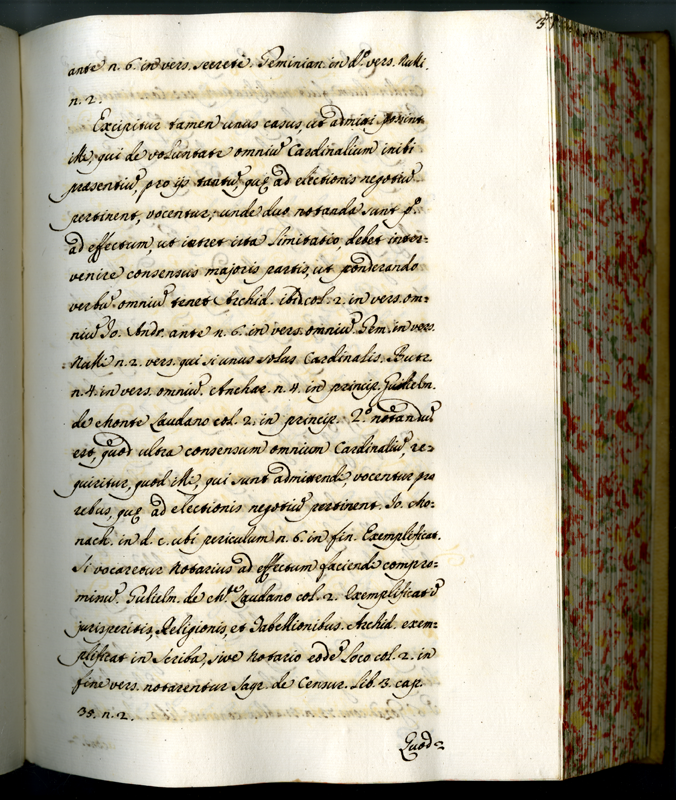 ante n. 6. in vers. secrete. Geminian. in d.º vers. Nulli.
n. 2.
Excipitur tamen unus casus, ut admitti possint
illi, qui de voluntate omniũ Cardinalium inibi
præsentiũ, pro ijs tantũ, quę ad electionis negotiũ
pertinent, vocentur, unde duo notanda sunt p.º
ad effectum, ut intret ista limitatio, debet inter=
venire consensus majoris partis, ut ponderando
verbũ omniũ tenet Archid. ibid. col. 2. in vers. om=
niũ Jo. Andr. ante n. 6. in vers. omniũ. Gem. in vers.
Nulli n. 2. vers. qui si unus solus Cardinalis. Butr.
n. 4. in vers. omniũ. Anchar. n. 4. in princip. Guilielm.
de Monte Laudano col. 2. in princip. 2.º notandũ
est, quod ultra consensum omnium Cardinaliũ, re=
quiritur, quod illi, qui sunt admittendi, vocentur pro
rebus, quę ad electionis negotiũ pertinent. Jo. Mo=
nach. in d. c. ubi periculum n. 6. in fin. Exemplificat.
Si vocaretur Notarius ad effectum faciendi compro=
missũ. Gulielm. de M.te Laudano col. 2. Exemplificat ĩ
jurisperitis, Religionis, et Tabellionibus. Archid. exem=
plificat in Scriba, sive Notario eodẽ loco col. 2. in
fine vers. notarentur Sagr. de Censur. lib. 3. cap.
35. n. 2.
Quod=